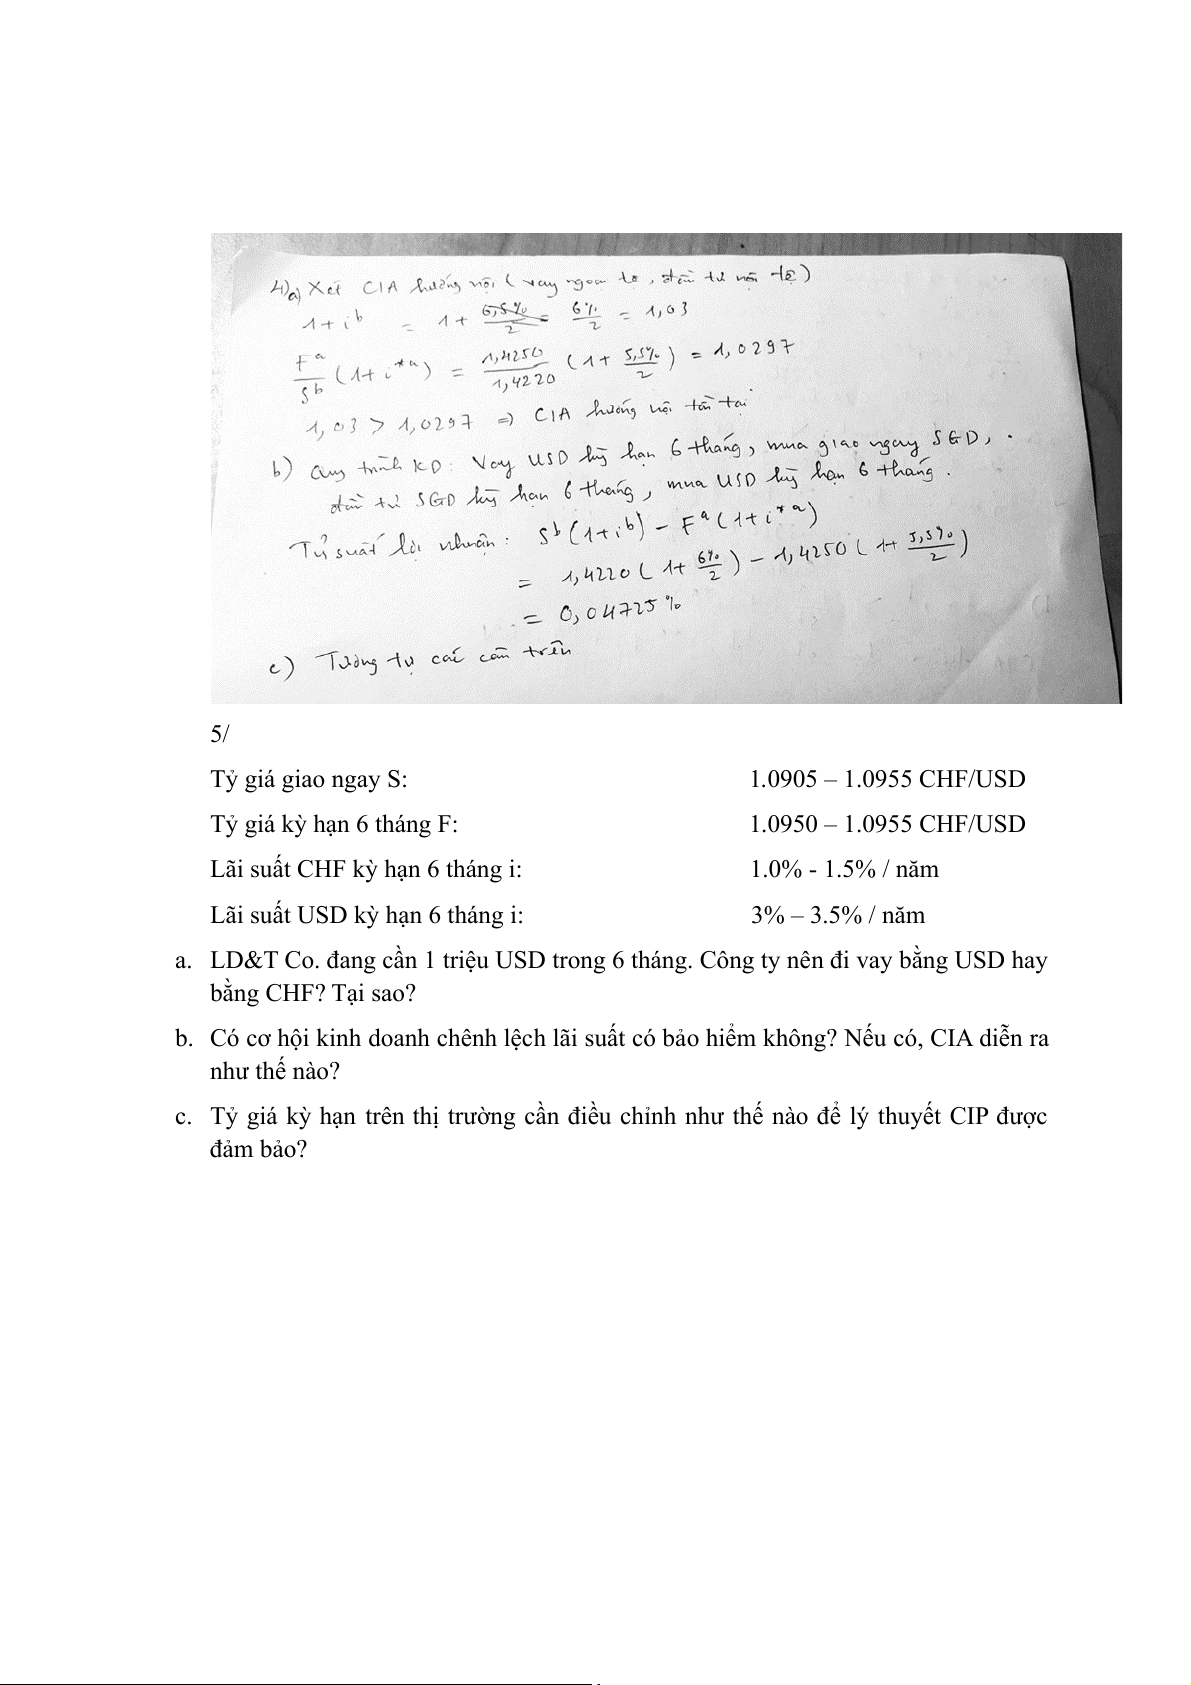 4) a) Xét CIA hướng nội (vay ngoại tệ, đầu tư nội tệ)
1 + i^b = 1 + 6,5%/2 = 6%/2 = 1,03
F^a/S^b (1 + i*^a) = 1,4250/1,4220 (1 + 5,5%/2) = 1,0297
1,03 > 1,0297 => CIA hướng nội tồn tại
b) Quy trình KD: Vay USD kỳ hạn 6 tháng, mua giao ngay SGD,
đầu tư SGD kỳ hạn 6 tháng, mua USD kỳ hạn 6 tháng.
Tỷ suất lợi nhuận: S^b (1 + i^b) – F^a (1 + i*^a)
= 1,4220 (1 + 6%/2) – 1,4250 (1 + 5,5%/2)
= 0,04725%
c) Tương tự các câu trên
5/
Tỷ giá giao ngay S: 1.0905 – 1.0955 CHF/USD
Tỷ giá kỳ hạn 6 tháng F: 1.0950 – 1.0955 CHF/USD
Lãi suất CHF kỳ hạn 6 tháng i: 1.0% - 1.5% / năm
Lãi suất USD kỳ hạn 6 tháng i: 3% – 3.5% / năm
a. LD&T Co. đang cần 1 triệu USD trong 6 tháng. Công ty nên đi vay bằng USD hay
bằng CHF? Tại sao?
b. Có cơ hội kinh doanh chênh lệch lãi suất có bảo hiểm không? Nếu có, CIA diễn ra
như thế nào?
c. Tỷ giá kỳ hạn trên thị trường cần điều chỉnh như thế nào để lý thuyết CIP được
đảm bảo?